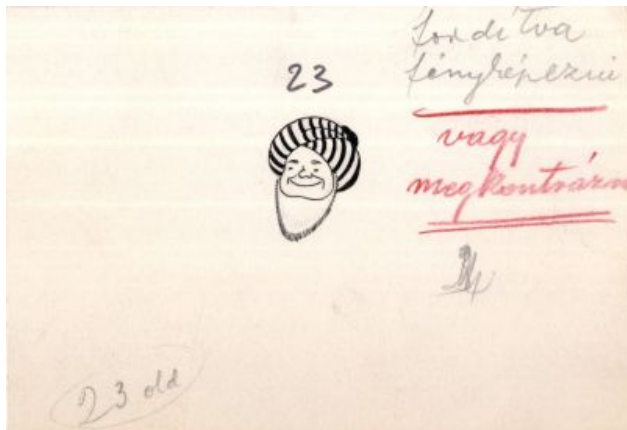 23
fordítva
fényképezni
vagy
megkontrázni
23 old